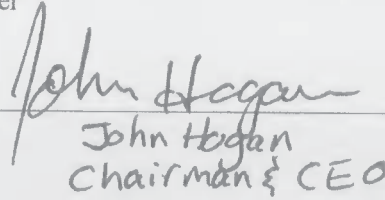 John Hogan
John Hogan
Chairman & CEO